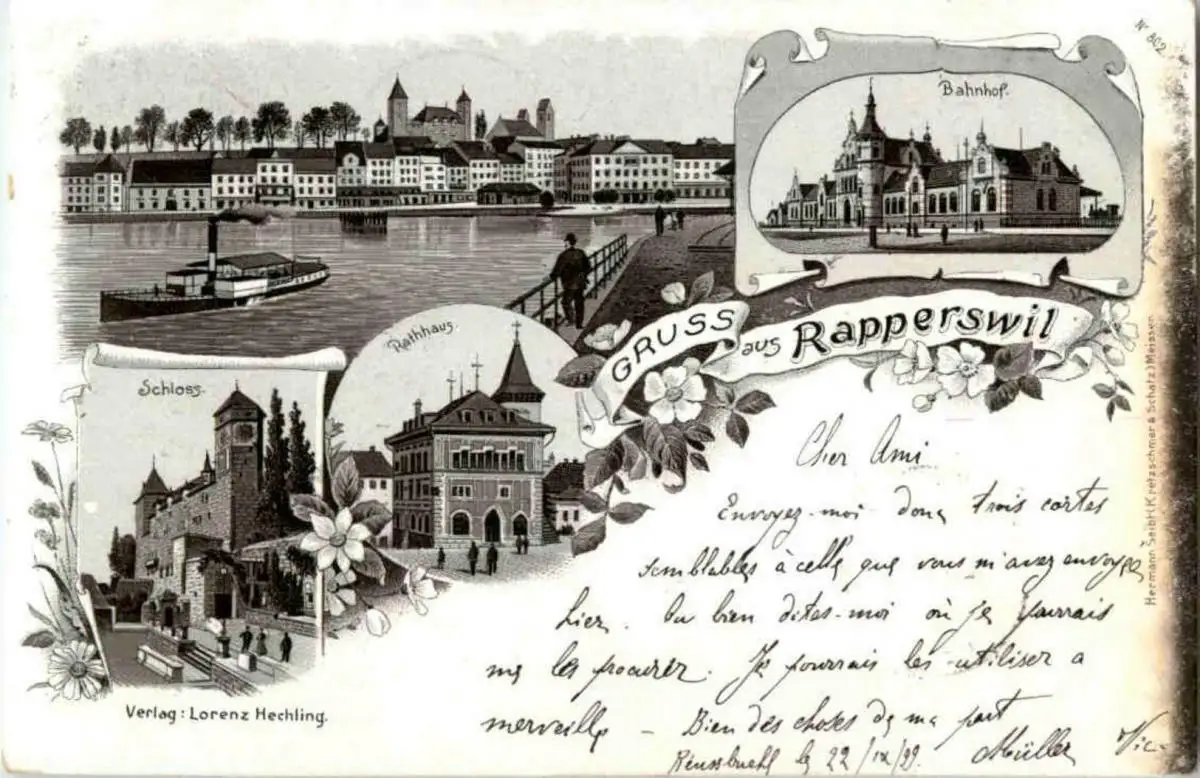 Nº 862
Bahnhof.
GRUSS aus Rapperswil
Rathhaus.
Schloss.
Verlag: Lorenz Hechling.
Hermann Seibt (Kretzschmar & Schatz) Meissen
Cher Ami
Envoyez-moi donc trois cartes
semblables à celle que vous m'avez envoyée
hier. Ou bien dites-moi où je pourrais
me les procurer. Je pourrais les utiliser a
merveille - Bien des choses de ma part
Reussbuehl le 22/IX/99. Müller